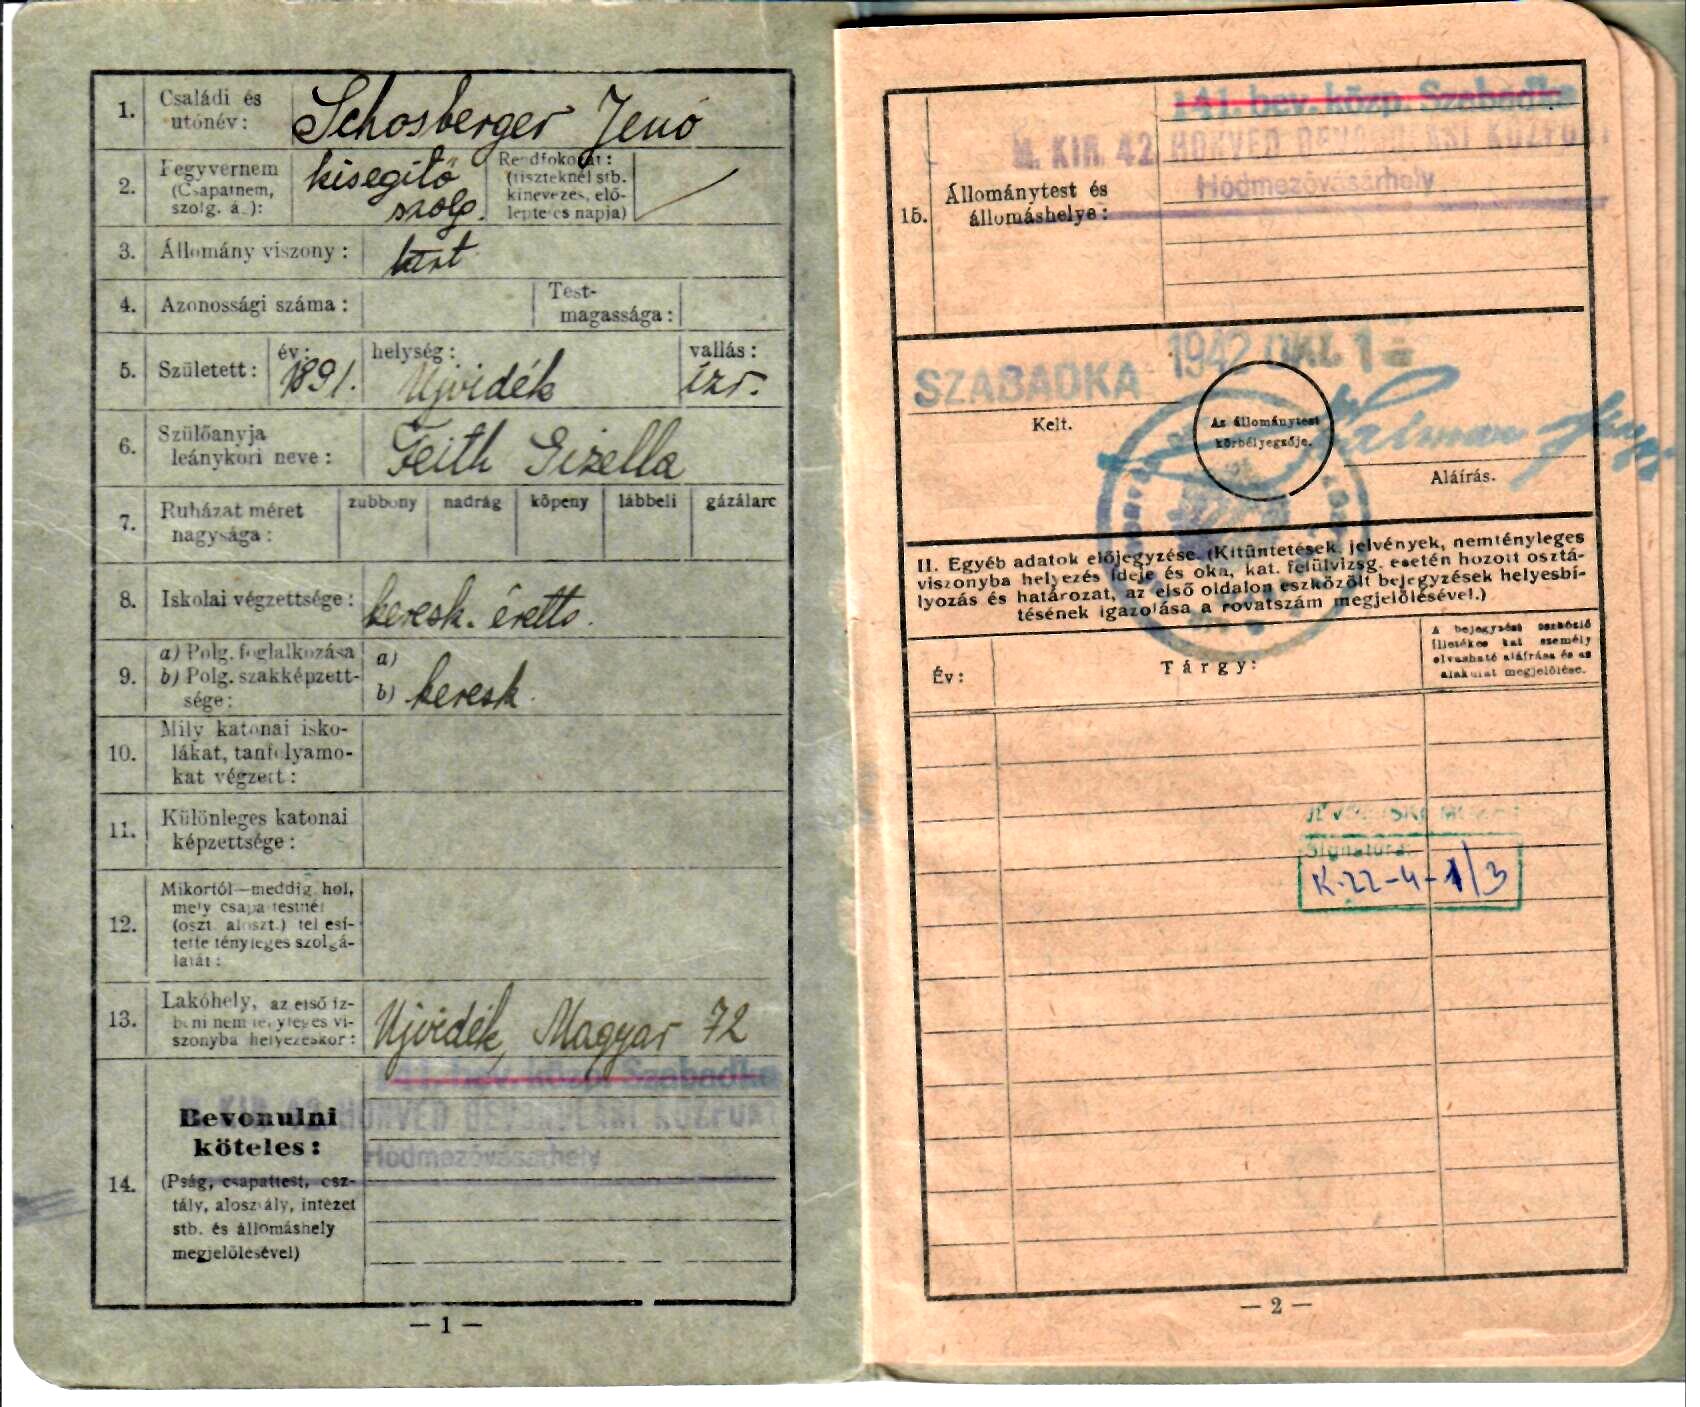 1. Családi és utónév: Schosberger Jenő
2. Fegyvernem (Csapatnem, szolg. á.): kisegítő szolg. Rendfokozat: (tiszteknél stb. kinevezés, előléptetés napja)
3. Állomány viszony:
4. Azonossági száma: Testmagassága:
5. Született: év: 1891. helység: Ujvidék vallás: izr.
6. Szülőanyja leánykori neve: Feith Gizella
7. Ruházat méret nagysága: zubbony nadrág köpeny lábbeli gázálarc
8. Iskolai végzettsége: keresk. éretts.
9. a) Polg. foglalkozása a)
b) Polg. szakképzettsége: b) keresk.
10. Mily katonai iskolákat, tanfolyamokat végzett:
11. Különleges katonai képzettsége:
12. Mikortól—meddig, hol, mely csapattestnél (oszt. aloszt.) teljesítette tényleges szolgálatát:
13. Lakóhely, az első ízbeni nem tényleges viszonyba helyezéskor: Ujvidék, Magyar 72
141. bev. közp. Szabadka
M. KIR. 42. HONVÉD BEVONULÁSI KÖZPONT
Hódmezővásárhely
14. Bevonulni köteles:
(Pság, csapattest, osztály, alosztály, intézet stb. és állomáshely megjelölésével)
— 1 —
141. bev. közp. Szabadka
M. KIR. 42. HONVÉD BEVONULÁSI KÖZPONT
Hódmezővásárhely
15. Állománytest és állomáshelye:
SZABADKA 1942 OKT. 1
Kelt.
Az állománytest körbélyegzője.
Aláírás.
II. Egyéb adatok előjegyzése. (Kitüntetések, jelvények, nemtényleges
viszonyba helyezés ideje és oka, kat. felülvizsg. esetén hozott osztá-
lyozás és határozat, az első oldalon eszközölt bejegyzések helyesbí-
tésének igazolása a rovatszám megjelölésével.)
Év: Tárgy:
A bejegyzést eszközlő
illetékes kat. személy
olvasható aláírása és az
alakulat megjelölése.
Signatura:
K-22-4-1/3
— 2 —